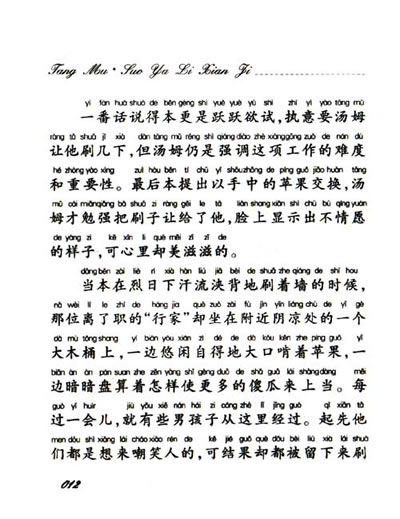 Tang Mu · Suo Ya Li Xian Ji
yì fān huà shuō de běn gèng shì yuè yuè yù shì zhí yì yào tāng mǔ
一番话说得本更是跃跃欲试,执意要汤姆
ràng tā shuā jǐ xià dàn tāng mǔ réng shì qiáng diào zhè xiàng gōng zuò de nán dù
让他刷几下,但汤姆仍是强调这项工作的难度
hé zhòng yào xìng zuì hòu běn tí chū yǐ shǒu zhōng de píng guǒ jiāo huàn tāng
和重要性。最后本提出以手中的苹果交换,汤
mǔ cái miǎn qiǎng bǎ shuā zi ràng gěi le tā liǎn shang xiǎn shì chū bù qíng yuàn
姆才勉强把刷子让给了他,脸上显示出不情愿
de yàng zi kě xīn li què měi zī zī de
的样子,可心里却美滋滋的。
dāng běn zài liè rì xià hàn liú jiā bèi de shuā zhe qiáng de shí hou
当本在烈日下汗流浃背地刷着墙的时候,
nà wèi lí le zhí de háng jia què zuò zài fù jìn yīn liáng chù de yí gè
那位离了职的“行家”却坐在附近阴凉处的一个
dà mù tǒng shang yì biān yōu xián zì dé de dà kǒu kěn zhe píng guǒ yì
大木桶上,一边悠闲自得地大口啃着苹果,一
biān àn àn pán suan zhe zěn yàng shǐ gèng duō de shǎ guā lái shàng dàng měi
边暗暗盘算着怎样使更多的傻瓜来上当。每
guò yí huìr jiù yǒu xiē nán hái zi cóng zhè lǐ jīng guò qǐ xiān tā
过一会儿,就有些男孩子从这里经过。起先他
men dōu shì xiǎng lái cháo xiào rén de kě jié guǒ què dōu bèi liú xià lái shuā
们都是想来嘲笑人的,可结果却都被留下来刷
012